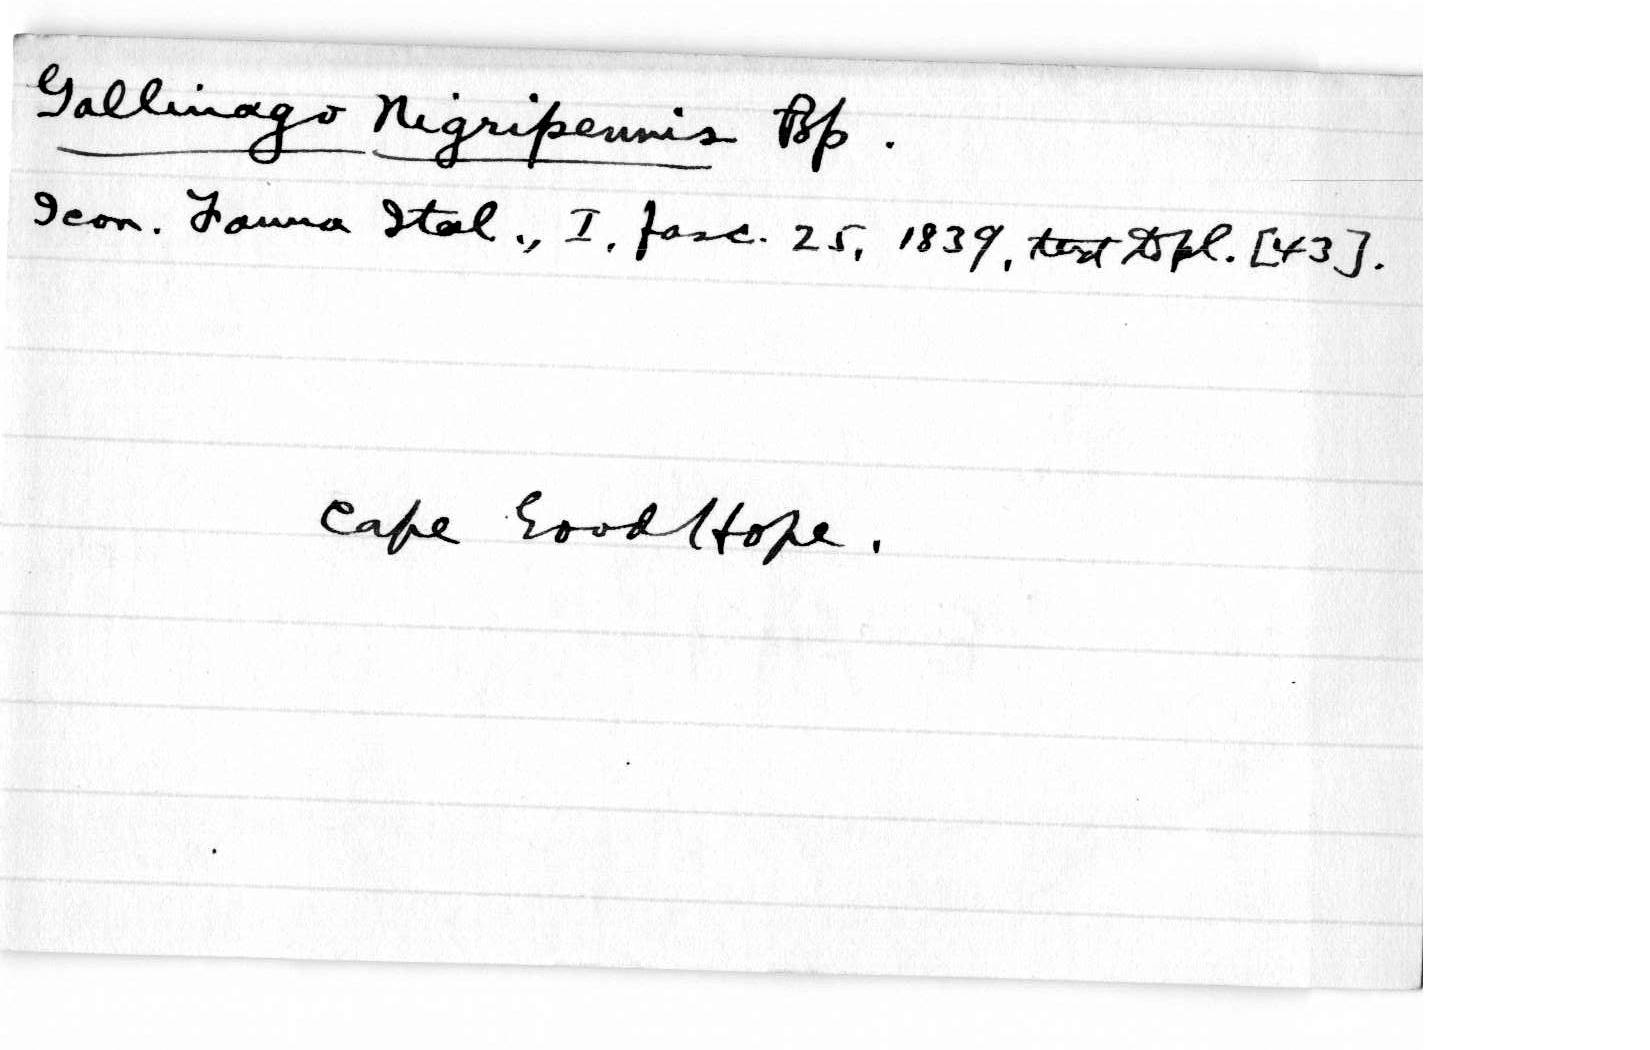 Gallinago Nigripennis Bp.
Icon. Fauna Ital., I, fasc. 25, 1839, text to pl. [43].
Cape Good Hope.